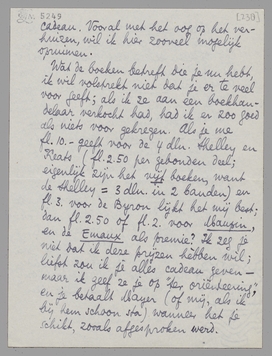 5249
cadeau. Vooral met het oog op het ver-
huizen, wil ik hier zooveel mogelijk
opruimen.
Wat de boeken betreft die je nu hebt,
ik wil volstrekt niet dat je er te veel
voor geeft; als ik ze aan een boekhan-
delaar verkocht had, had ik er zoo goed
als niets voor gekregen. Als je me
fl. 10.- geeft voor de 4 dln. Shelley en
Keats (fl. 2.50 per gebonden deel;
eigenlijk zijn het vijf boeken, want
de Shelley = 3 dln. in 2 banden) en
fl. 3. voor de Byron lijkt het mij best;
dan fl. 2.50 of fl. 2. voor Maupin,
en de Emaux als premie? Ik zeg je
niet dat ik deze prijzen hebben wil;
liefst zou ik je alles cadeau geven –
maar ik geef ze je op "ter oriënteering",
en je betaalt Mayer (of mij, als ik
bij hem schoon sta) wanneer het je
schikt, zooals afgesproken werd.